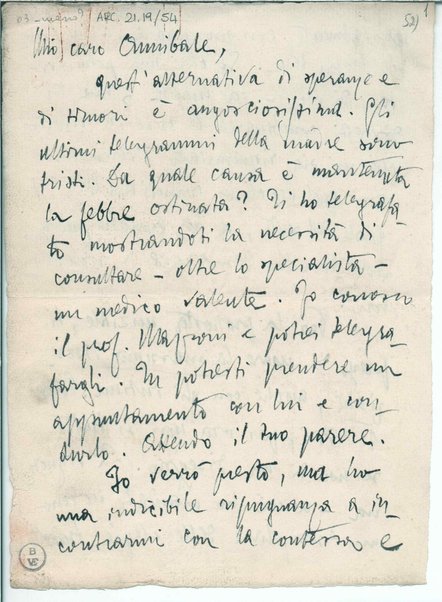 ARC. 21.19/54
52)
1
Mio caro Annibale,
quest'alternativa di speranze e
di timori è angosciosissima. Gli
ultimi telegrammi della madre sono
tristi. Da quale causa è mantenuta
la febbre ostinata? Ti ho telegrafa-
to mostrandoti la necessità di
consultare – oltre lo specialista –
un medico valente. Io conosco
il prof. e potrei telegra-
fargli. Tu potresti prendere un
appuntamento con lui e con-
durlo. Attendo il tuo parere.
Io verrò presto, ma ho
una indicibile ripugnanza a in-
contrarmi con la contessa e
B
VE